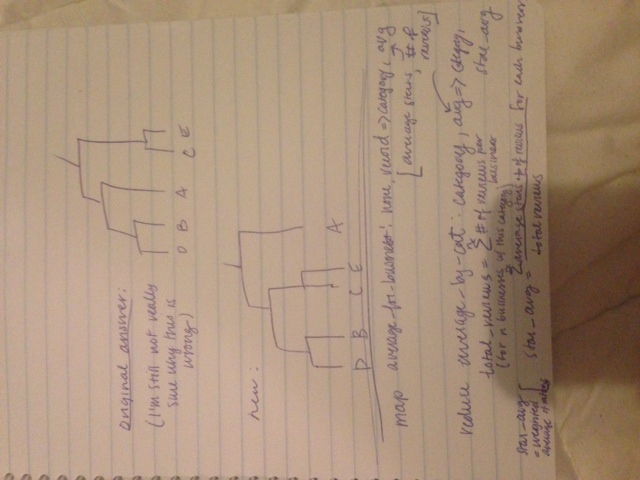 original answer:
(I'm still not really
sure why this is
wrong)
D B A C E
new:
D B C E A
map average_for_business: none, record => category, avg
[average stars, # of
reviews]
reduce average_by_cat: category, avg => category,
star_avg
total_reviews = Σ # of reviews per
business
(for n businesses w/ this category)
star_avg
= weighted
average of
star_avg = Σ average stars * # of reviews for each business
total reviews